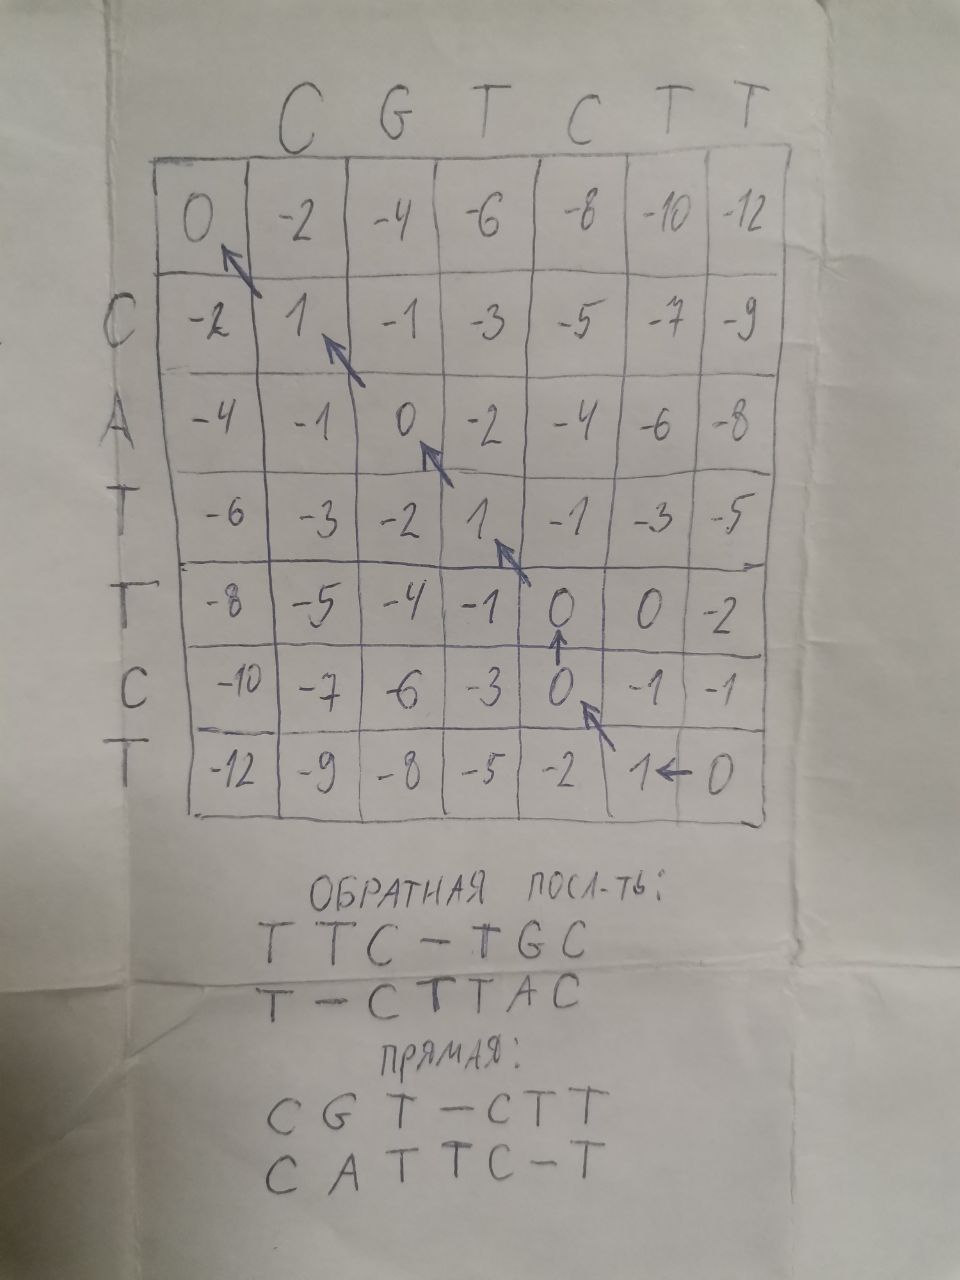 C G T C T T
0 -2 -4 -6 -8 -10 -12
C -2 1 -1 -3 -5 -7 -9
A -4 -1 0 -2 -4 -6 -8
T -6 -3 -2 1 -1 -3 -5
T -8 -5 -4 -1 0 0 -2
C -10 -7 -6 -3 0 -1 -1
T -12 -9 -8 -5 -2 1 ← 0
ОБРАТНАЯ ПОСЛ-ТЬ:
T T C - T G C
T - C T T A C
ПРЯМАЯ:
C G T - C T T
C A T T C - T